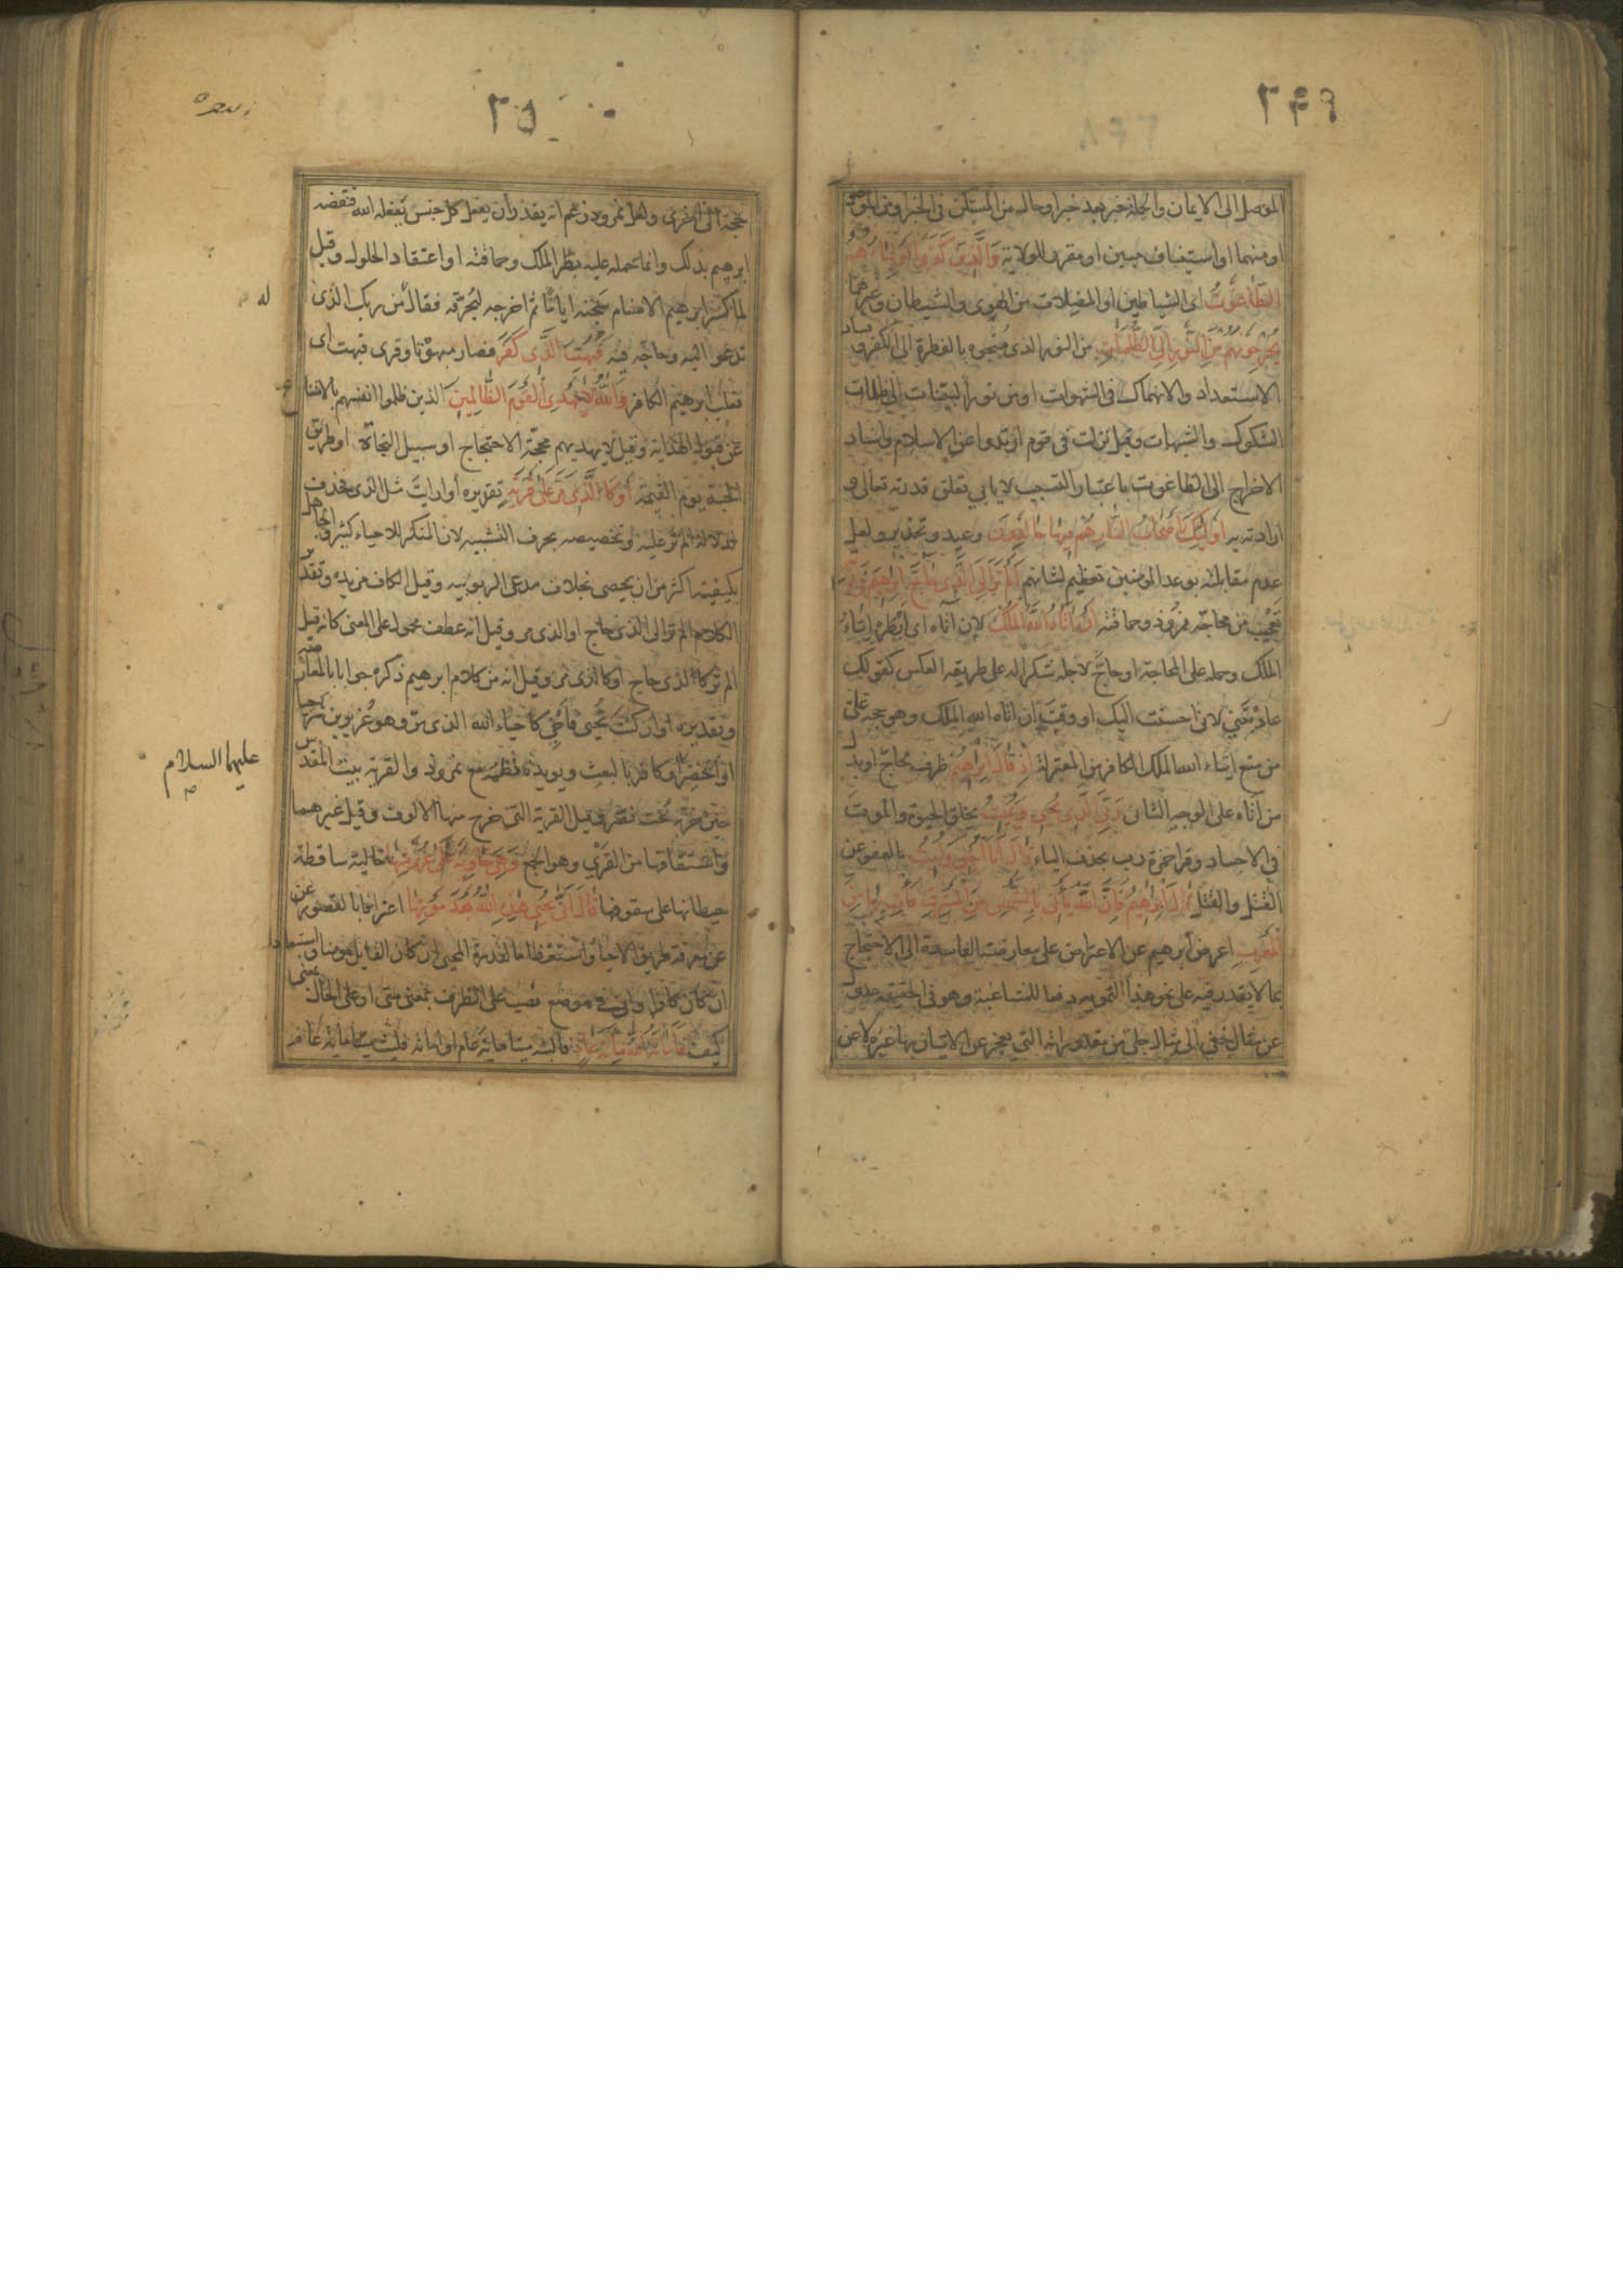 ٢٤٩
الموصل الى الايمان والجملة خبر بعد خبر او حال من المستكن فى الخبر او من الموصول
او منهما او استيناف مبين او مقرر للولاية وَالَّذِينَ كَفَرُوا أَوْلِيَاؤُهُمُ
الطَّاغُوتُ اى الشياطين او المضلات من الهوى والشيطان وغيرهما
يُخْرِجُونَهُمْ مِنَ النُّورِ إِلَى الظُّلُمَاتِ من النور الذى منحوه بالفطرة الى الكفر وفساد
الاستعداد والانهماك فى الشهوات او من نور البينات الى ظلمات
الشكوك والشبهات وقيل نزلت فى قوم ارتدوا عن الاسلام واسناد
الاخراج الى الطاغوت باعتبار التسبب لا يابى تعلق قدرته تعالى و
ارادته به أُولَئِكَ أَصْحَابُ النَّارِ هُمْ فِيهَا خَالِدُونَ وعيد وتحذير ولعل
عدم مقابلته بوعد المومنين تعظيم لشانهم أَلَمْ تَرَ إِلَى الَّذِي حَاجَّ إِبْرَاهِيمَ فِي رَبِّهِ
تعجيب من محاجة نمروذ وحماقته أَنْ آتَاهُ اللَّهُ الْمُلْكَ لان آتاه اى ابطره ايتاء
الملك وحمله على المحاجة او حاج لاجله شكرا له على طريقة العكس كقولك
عاديتنى لانى احسنت اليك او وقت ان اتاه الله الملك وهو حجة على
من منع ايتاء الله الملك الكافر من المعتزلة إِذْ قَالَ إِبْرَاهِيمُ ظرف لحاج او بدل
من آتاه على الوجه الثانى رَبِّيَ الَّذِي يُحْيِي وَيُمِيتُ بخلق الحيوة والموت
فى الاجساد وقرا حمزة رب بحذف الياء قَالَ أَنَا أُحْيِي وَأُمِيتُ بالعفو عن
القتل والقتل قَالَ إِبْرَاهِيمُ فَإِنَّ اللَّهَ يَأْتِي بِالشَّمْسِ مِنَ الْمَشْرِقِ فَأْتِ بِهَا مِنَ
الْمَغْرِبِ اعرض ابرهيم عن الاعتراض على معارضته الفاسدة الى الاحتجاج
بما لا يقدر فيه على نحو هذا التمويه دفعا للمشاغبة وهو فى الحقيقة عدول
عن مثال خفى الى مثال جلى من مقدوراته التى يعجز عن الاتيان بها غيره لا عن
٢٥٠
حجة الى اخرى ولعل نمرود زعم انه يقدر ان يفعل كل جنس يفعله الله فنقضه
ابرهيم بذلك وانما حمله عليه بطر الملك وحماقته او اعتقاد الحلول وقيل
لما كسر ابرهيم الاصنام سجنه اياما ثم اخرجه ليحرقه فقال من ربك الذى
تدعو اليه وحاجه فيه فَبُهِتَ الَّذِي كَفَرَ فصار مبهوتا وقرى فبهت اى
فغلب ابرهيم الكافر وَاللَّهُ لَا يَهْدِي الْقَوْمَ الظَّالِمِينَ الذين ظلموا انفسهم بالامتناع
عن قبول الهداية وقيل لا يهديهم محجة الاحتجاج او سبيل النجاة او طريق
الجنة يوم القيمة أَوْ كَالَّذِي مَرَّ عَلَى قَرْيَةٍ تقديره او ارايت مثل الذى فحذف
لدلالة الم تر عليه وتخصيصه بحرف التشبيه لان المنكر للاحياء كثير والجاهل
بكيفيته اكثر من ان يحصى بخلاف مدعى الربوبيه وقيل الكاف مزيدة وتقدير
الكلام الم تر الى الذى حاج او الذى مر وقيل انه عطف محمول على المعنى كانه قيل
الم تر كالذى حاج او كالذى مر وقيل انه من كلام ابرهيم ذكره جوابا لمعارضته
وتقديره او ان كنت تحيى فاحى كاحياء الله الذى مر وهو عزير بن شرحيا
او الخضر او كافر بالبعث ويويده نظمه مع نمرود والقرية بيت المقدس
حين خربه بخت نصر وقيل القرية التى خرج منها الالوف وقيل غيرهما
واشتقاقها من القرى وهو الجمع وَهِيَ خَاوِيَةٌ عَلَى عُرُوشِهَا خالية ساقطة
حيطانها على سقوفها قَالَ أَنَّى يُحْيِي هَذِهِ اللَّهُ بَعْدَ مَوْتِهَا اعترافا بالقصور عن
عن معرفة طريق الاحياء واستعظاما لقدرة المحيى ان كان القايل مومنا واستبعادا
ان كان كافرا وانى فى موضع نصب على الظرف بمعنى متى او على الحال بمعنى
كيف فَأَمَاتَهُ اللَّهُ مِائَةَ عَامٍ فالبثه ميتا مائة عام او اماته فلبث ميتا مائة عام
له
عليهما السلام